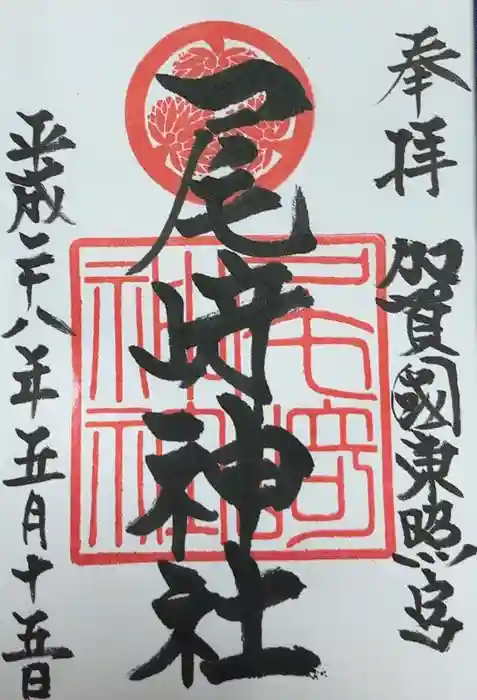 奉拝
加賀國東照宮
尾崎神社
平成二十八年五月十五日
尾崎
神社